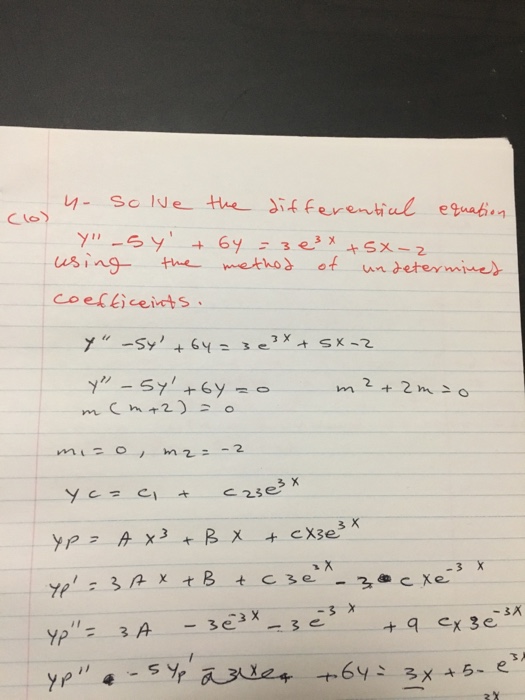 (10) 4- Solve the differential equation
y'' - 5y' + 6y = 3e^3x + 5x - 2
using the method of undetermined
coefficeints.
y'' - 5y' + 6y = 3e^3x + 5x - 2
y'' - 5y' + 6y = 0 m^2 + 2m = 0
m(m+2) = 0
m1 = 0, m2 = -2
yc = c1 + c23e^3x
yp = Ax^3 + Bx + cx3e^3x
yp' = 3Ax + B + c3e^3x - 3cxe^-3x
yp'' = 3A - 3e^-3x - 3e^-3x + 9cx3e^-3x
yp'' - 5yp' + 6y = 3x + 5 -